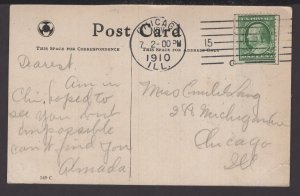 Post Card
THIS SPACE FOR CORRESPONDENCE
THIS SPACE FOR ADDRESS ONLY
CHICAGO
7 2-00PM
1910
ILL.
15
C
Dearest. Am in
Chi, hoped to
see you but
impossible
can't find you
Almada
Miss
2 Michigan Ave
Chicago
Ill
349 C